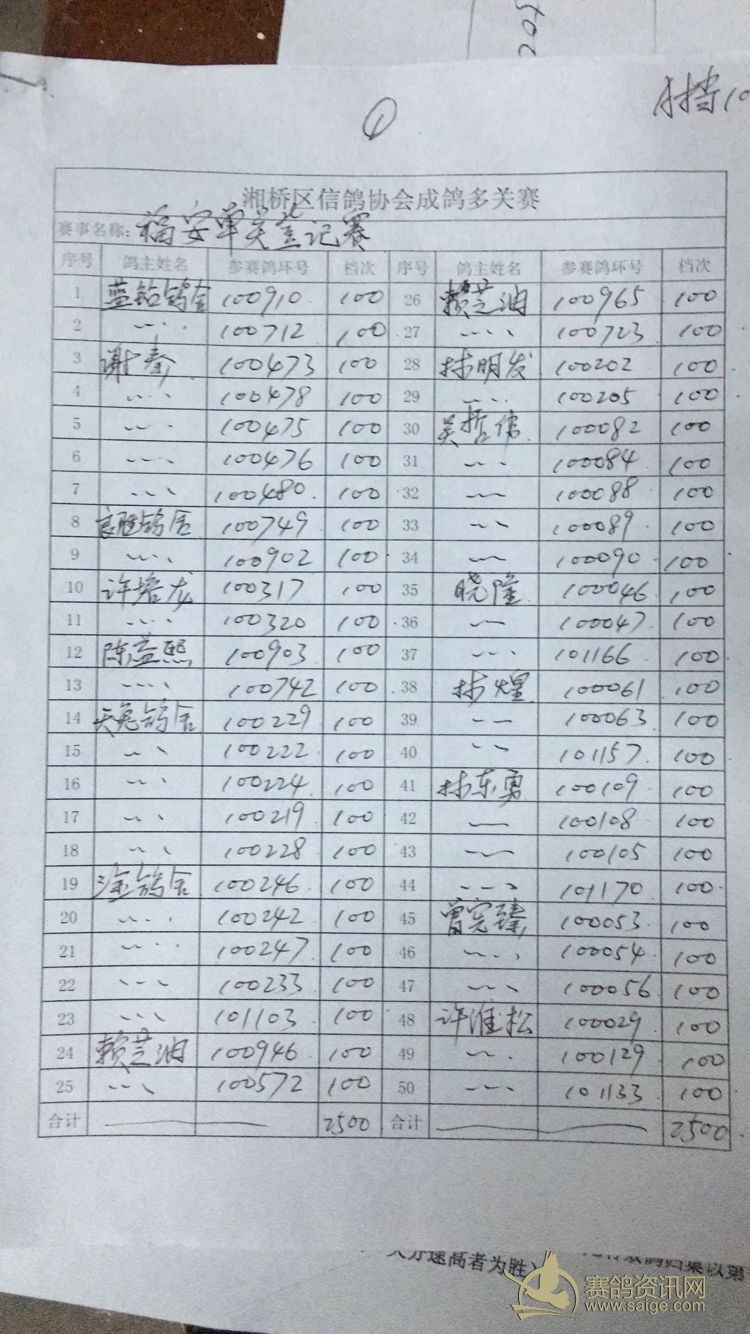 205
①
100
湘桥区信鸽协会成鸽多关赛
赛事名称: 福安单关登记赛
序号 鸽主姓名 参赛鸽环号 档次 序号 鸽主姓名 参赛鸽环号 档次
1 蓝钻鸽舍 100910 100 26 赖芝油 100965 100
2 〃 100712 100 27 〃 100723 100
3 谢泰 100473 100 28 林明发 100202 100
4 〃 100478 100 29 〃 100205 100
5 〃 100475 100 30 吴哲伟 100082 100
6 〃 100476 100 31 〃 100084 100
7 〃 100480 100 32 〃 100088 100
8 鸽舍 100749 100 33 〃 100089 100
9 〃 100902 100 34 〃 100090 100
10 许培龙 100317 100 35 晓隆 100046 100
11 〃 100320 100 36 〃 100047 100
12 陈益熙 100903 100 37 〃 101166 100
13 〃 100742 100 38 林煌 100061 100
14 天兔鸽舍 100229 100 39 〃 100063 100
15 〃 100222 100 40 〃 101157 100
16 〃 100224 100 41 林东勇 100109 100
17 〃 100219 100 42 〃 100108 100
18 〃 100228 100 43 〃 100105 100
19 鸽舍 100246 100 44 〃 101170 100
20 〃 100242 100 45 曾宪臻 100053 100
21 〃 100247 100 46 〃 100054 100
22 〃 100233 100 47 〃 100056 100
23 〃 101103 100 48 许淮松 100029 100
24 赖芝油 100946 100 49 〃 100129 100
25 〃 100572 100 50 〃 101133 100
合计 2500 合计 2500
分速高者为胜)
赛鸽资讯网
www.saige.com